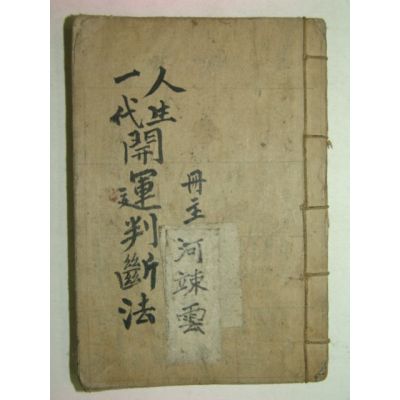 人生
一代
開運判斷法
冊主
河竦雲